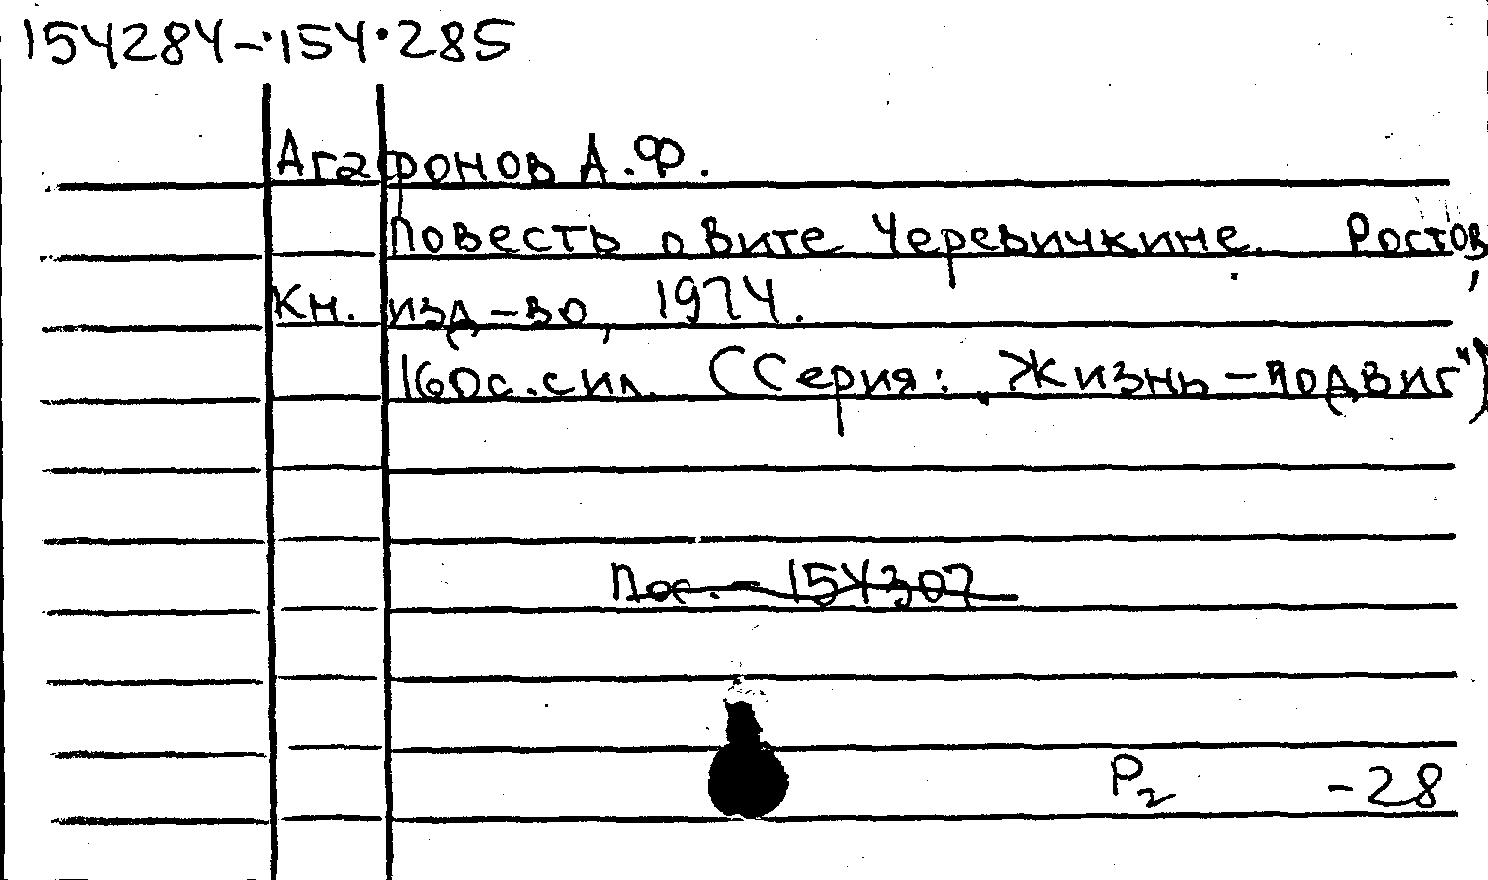 154284-154285
Агафонов А.Ф.
Повесть о Вите Черевичкине. Ростов,
Кн. изд-во, 1974.
160с.с ил. (Серия: „Жизнь-подвиг")
Пос. - 154307
Р2 -28